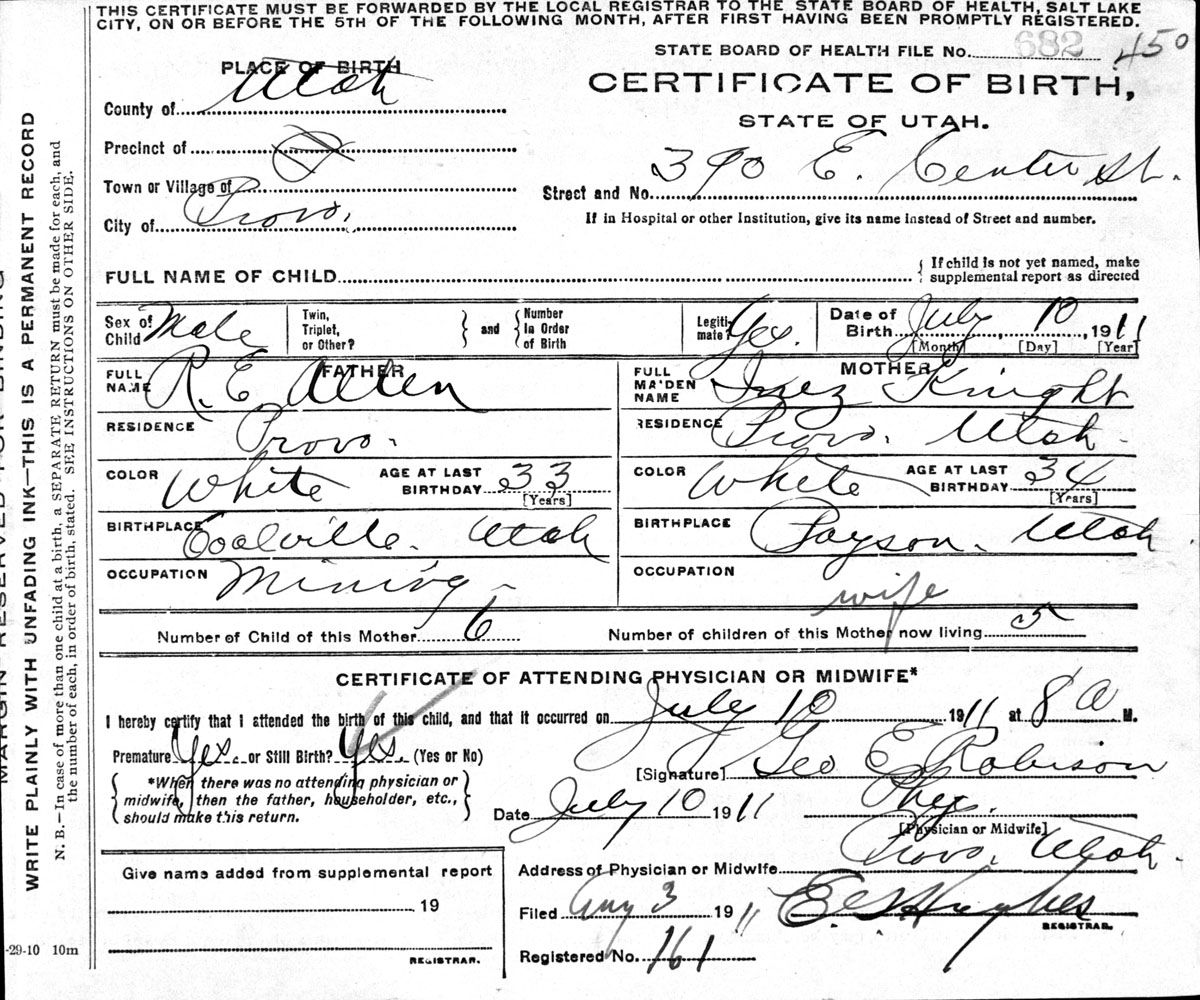 THIS CERTIFICATE MUST BE FORWARDED BY THE LOCAL REGISTRAR TO THE STATE BOARD OF HEALTH, SALT LAKE
CITY, ON OR BEFORE THE 5TH OF THE FOLLOWING MONTH, AFTER FIRST HAVING BEEN PROMPTLY REGISTERED.
STATE BOARD OF HEALTH FILE No. 682 450
PLACE OF BIRTH
CERTIFICATE OF BIRTH,
STATE OF UTAH.
County of Utah
Precinct of
Town or Village of
City of Provo.
Street and No. 390 E. Center St.
If in Hospital or other Institution, give its name instead of Street and number.
FULL NAME OF CHILD
{ If child is not yet named, make
supplemental report as directed
Sex of Child Male
Twin, Triplet, or Other?
and
Number In Order of Birth
Legiti- mate? Yes.
Date of Birth July 10, 1911
[Month] [Day] [Year]
FATHER
FULL NAME R. E. Allen
RESIDENCE Provo.
COLOR White AGE AT LAST BIRTHDAY 33 [Years]
BIRTHPLACE Coalville. Utah
OCCUPATION Mining
MOTHER
FULL MAIDEN NAME Inez Knight
RESIDENCE Provo. Utah.
COLOR White AGE AT LAST BIRTHDAY 34 [Years]
BIRTHPLACE Payson. Utah.
OCCUPATION wife
Number of Child of this Mother 6 Number of children of this Mother now living 5
CERTIFICATE OF ATTENDING PHYSICIAN OR MIDWIFE*
I hereby certify that I attended the birth of this child, and that it occurred on July 10 1911 at 8 a M.
Premature Yes or Still Birth? Yes. (Yes or No)
*When there was no attending physician or
midwife, then the father, householder, etc.,
should make this return.
[Signature] Geo E Robison
Date July 10 1911 Phys.
[Physician or Midwife]
Address of Physician or Midwife Provo, Utah.
Filed Aug 3 1911 Hughes
REGISTRAR.
Registered No. 161
Give name added from supplemental report
19
REGISTRAR.
MARGIN RESERVED FOR BINDING
WRITE PLAINLY WITH UNFADING INK—THIS IS A PERMANENT RECORD
N. B.—In case of more than one child at a birth, a SEPARATE RETURN must be made for each, and
the number of each, in order of birth, stated. SEE INSTRUCTIONS ON OTHER SIDE.
-29-10 10m